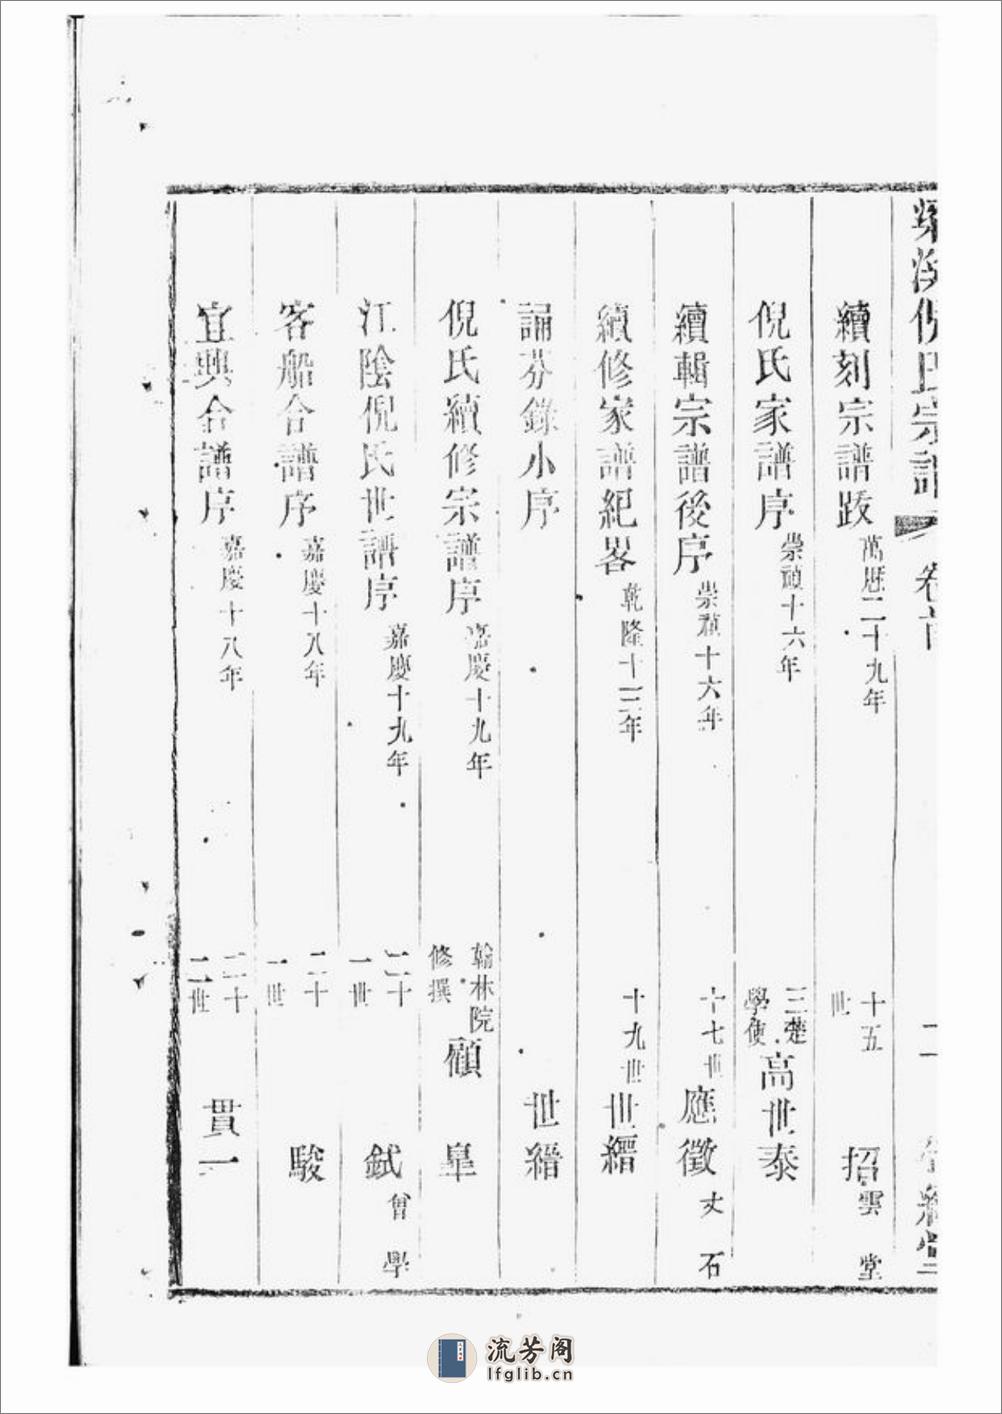 倪氏宗譜
卷首
二
續刻宗譜跋 萬厯二十九年 十五世 招 雲堂
倪氏家譜序 崇禎十六年 三楚學使 高世泰
續輯宗譜後序 崇禎十六年 十七世 應徵 丈石
續修家譜紀畧 乾隆十三年 十九世 世縉
誦芬錄小序 世縉
倪氏續修宗譜序 嘉慶十九年 翰林院修撰 顧皋
江陰倪氏世譜序 嘉慶十九年 二十一世 鉽 曾學
客船合譜序 嘉慶十八年 二十一世 駿
宜興合譜序 嘉慶十八年 二十二世 貫一
流芳阁
lfglib.cn